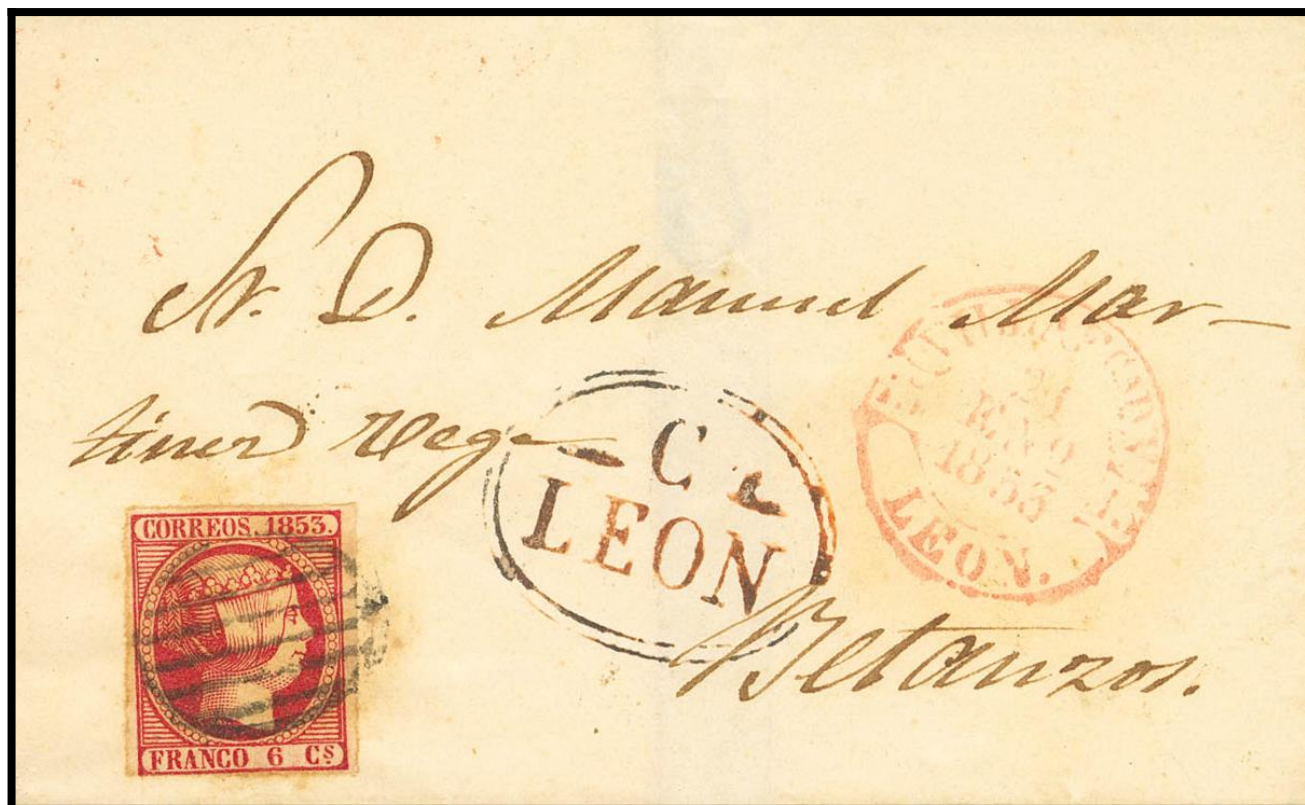 Sr. D. Manuel Mar-
tinez
C
LEON
21
ENO
1853
LEON.
Betanzos.
CORREOS. 1853.
FRANCO 6 Cs